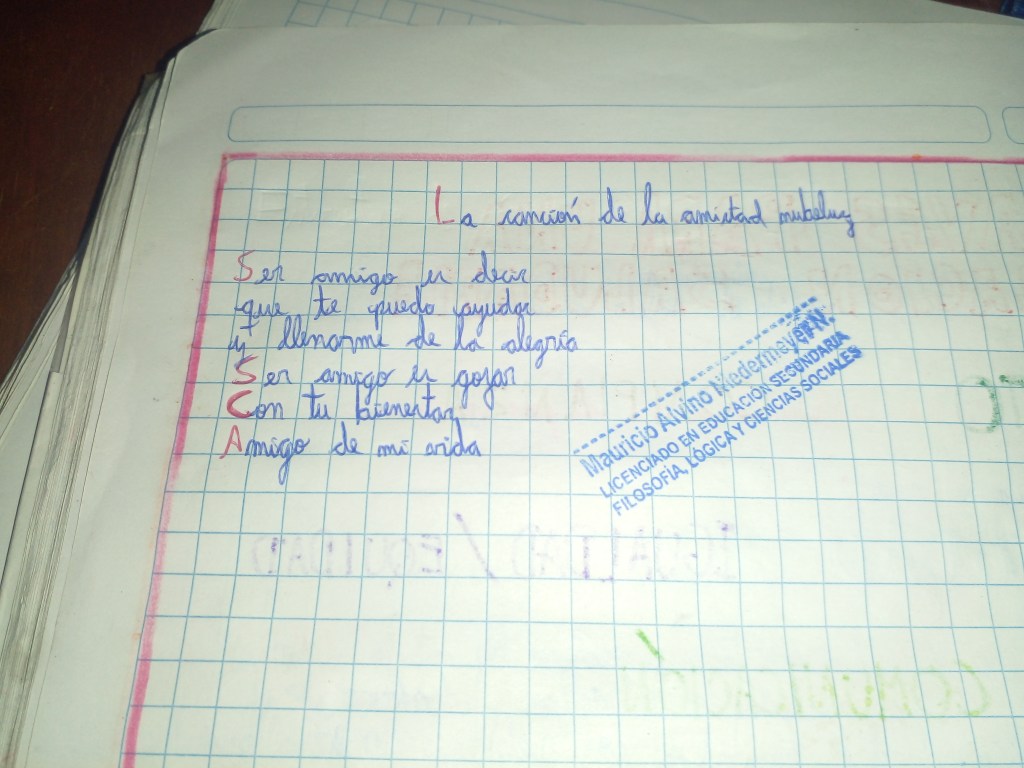 La canción de la amistad nubeluz
Ser amigo es decir
que te puedo ayudar
y llenarme de la alegría
Ser amigo es gozar
Con tu bienestar
Amigo de mi vida
Mauricio Alvino Niedermayer N.
LICENCIADO EN EDUCACIÓN SECUNDARIA
FILOSOFÍA, LÓGICA Y CIENCIAS SOCIALES
IGUALDAD / EQUIDAD
COMUNICACIÓN